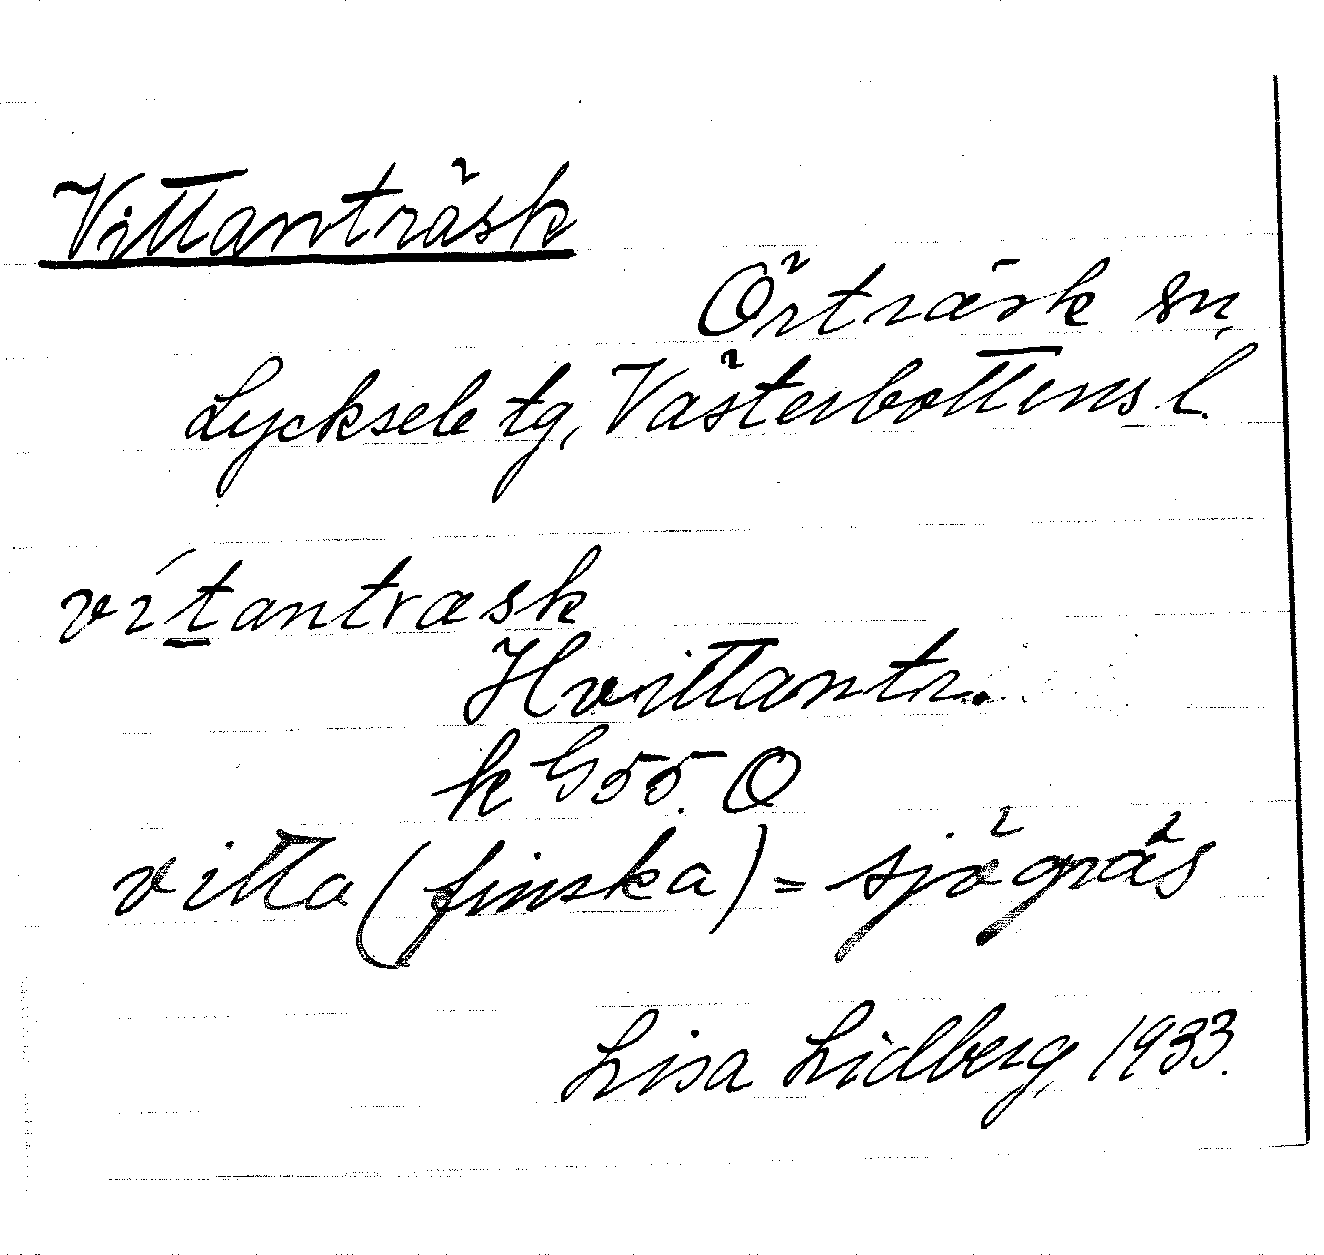 Vittanträsk
Örträsk sn,
Lycksele tg, Västerbottens l.
vítantræsk
Hvittantr.
k G 55. O
vitta (finska) = sjögräs
Lisa Lidberg 1933.